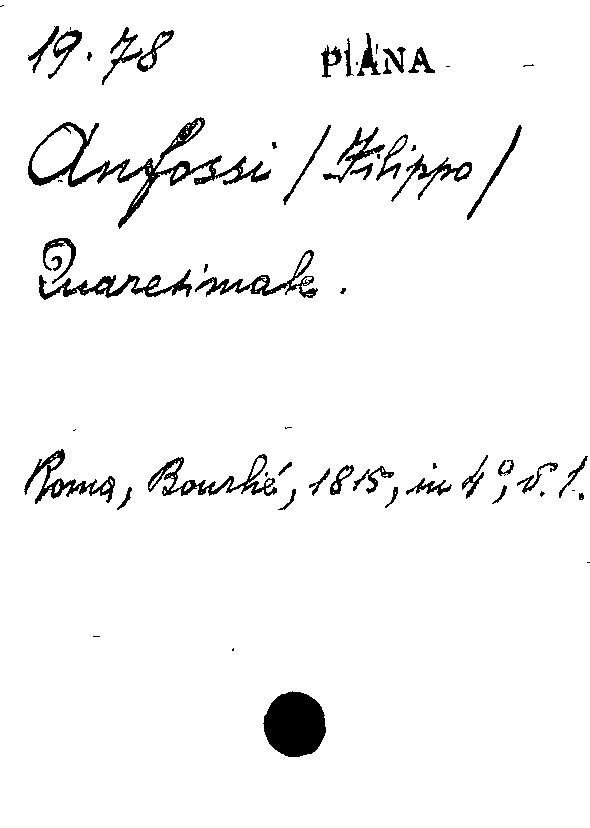 19.78 PIANA
Anfossi /Filippo/
Quaresimale.
Roma, Bourlié, 1815, in 4°, v. 1.